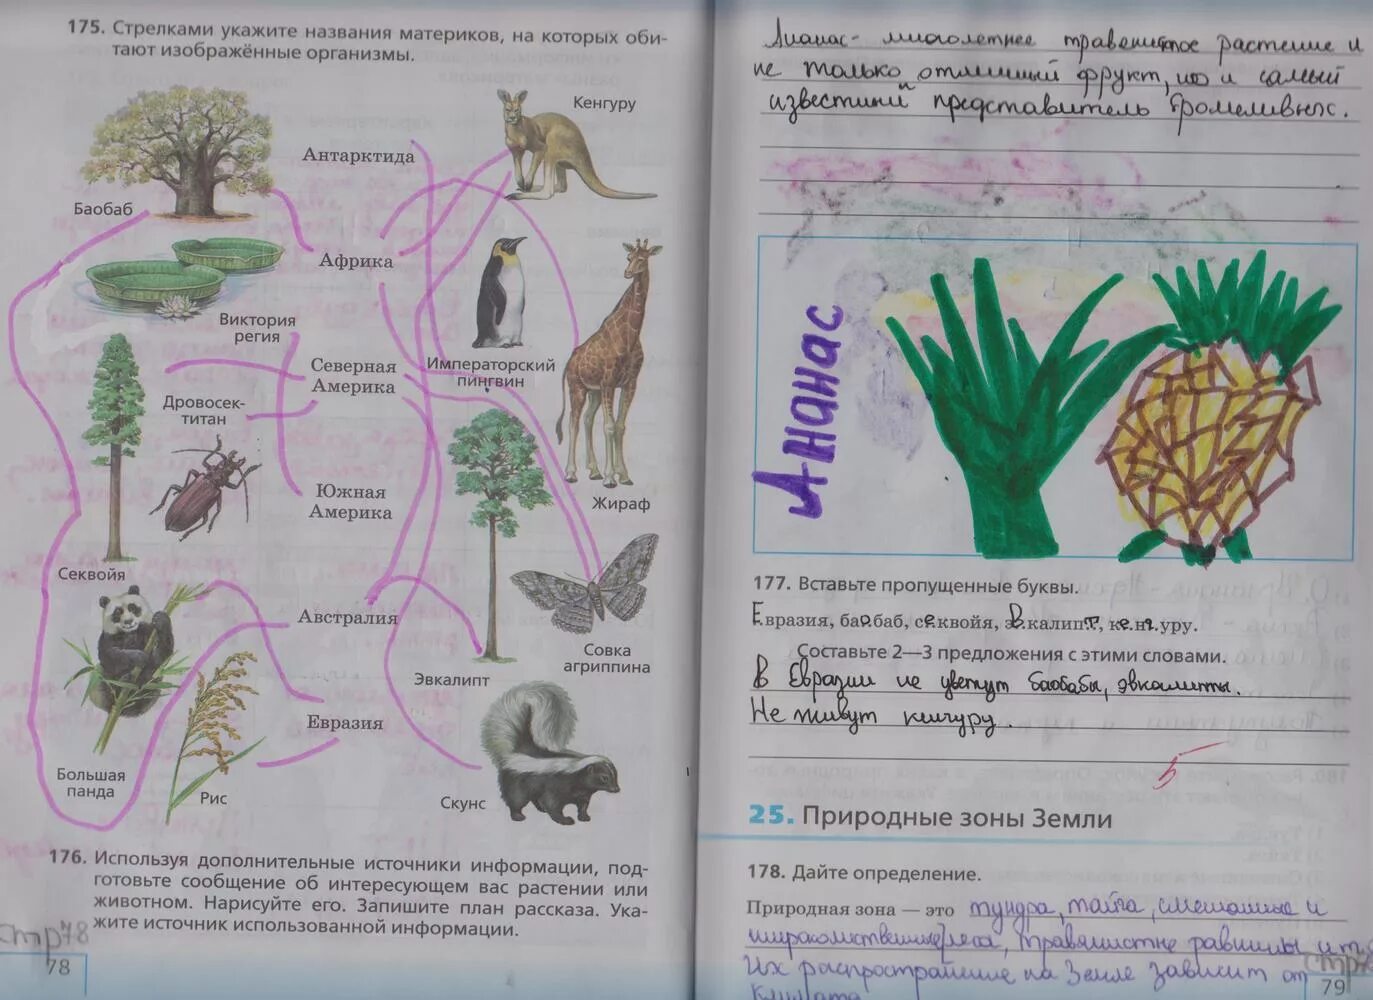 175. Стрелками укажите названия материков, на которых оби-
тают изображённые организмы.
Кенгуру
Антарктида
Баобаб
Африка
Виктория
регия
Северная
Америка
Императорский
пингвин
Дровосек-
титан
Южная
Америка
Жираф
Секвойя
Австралия
Совка
агриппина
Эвкалипт
Евразия
Большая
панда
Рис
Скунс
176. Используя дополнительные источники информации, под-
готовьте сообщение об интересующем вас растении или
животном. Нарисуйте его. Запишите план рассказа. Ука-
жите источник использованной информации.
стр 78
78
Ананас - многолетнее травенистое растение и
не только отличный фрукт, но и самый
известний представитель бромеливых.
Ананас
177. Вставьте пропущенные буквы.
Евразия, баобаб, секвойя, эвкалипт, кенгуру.
Составьте 2—3 предложения с этими словами.
В Евразии не цветут баобабы, эвкалипты.
Не живут кингуру.
5
25. Природные зоны Земли
178. Дайте определение.
Природная зона — это тундра, тайга, смешанные и
широколиственные леса, травянистые равнины и т
Их распространение на Земле зависит от
климата
стр
79